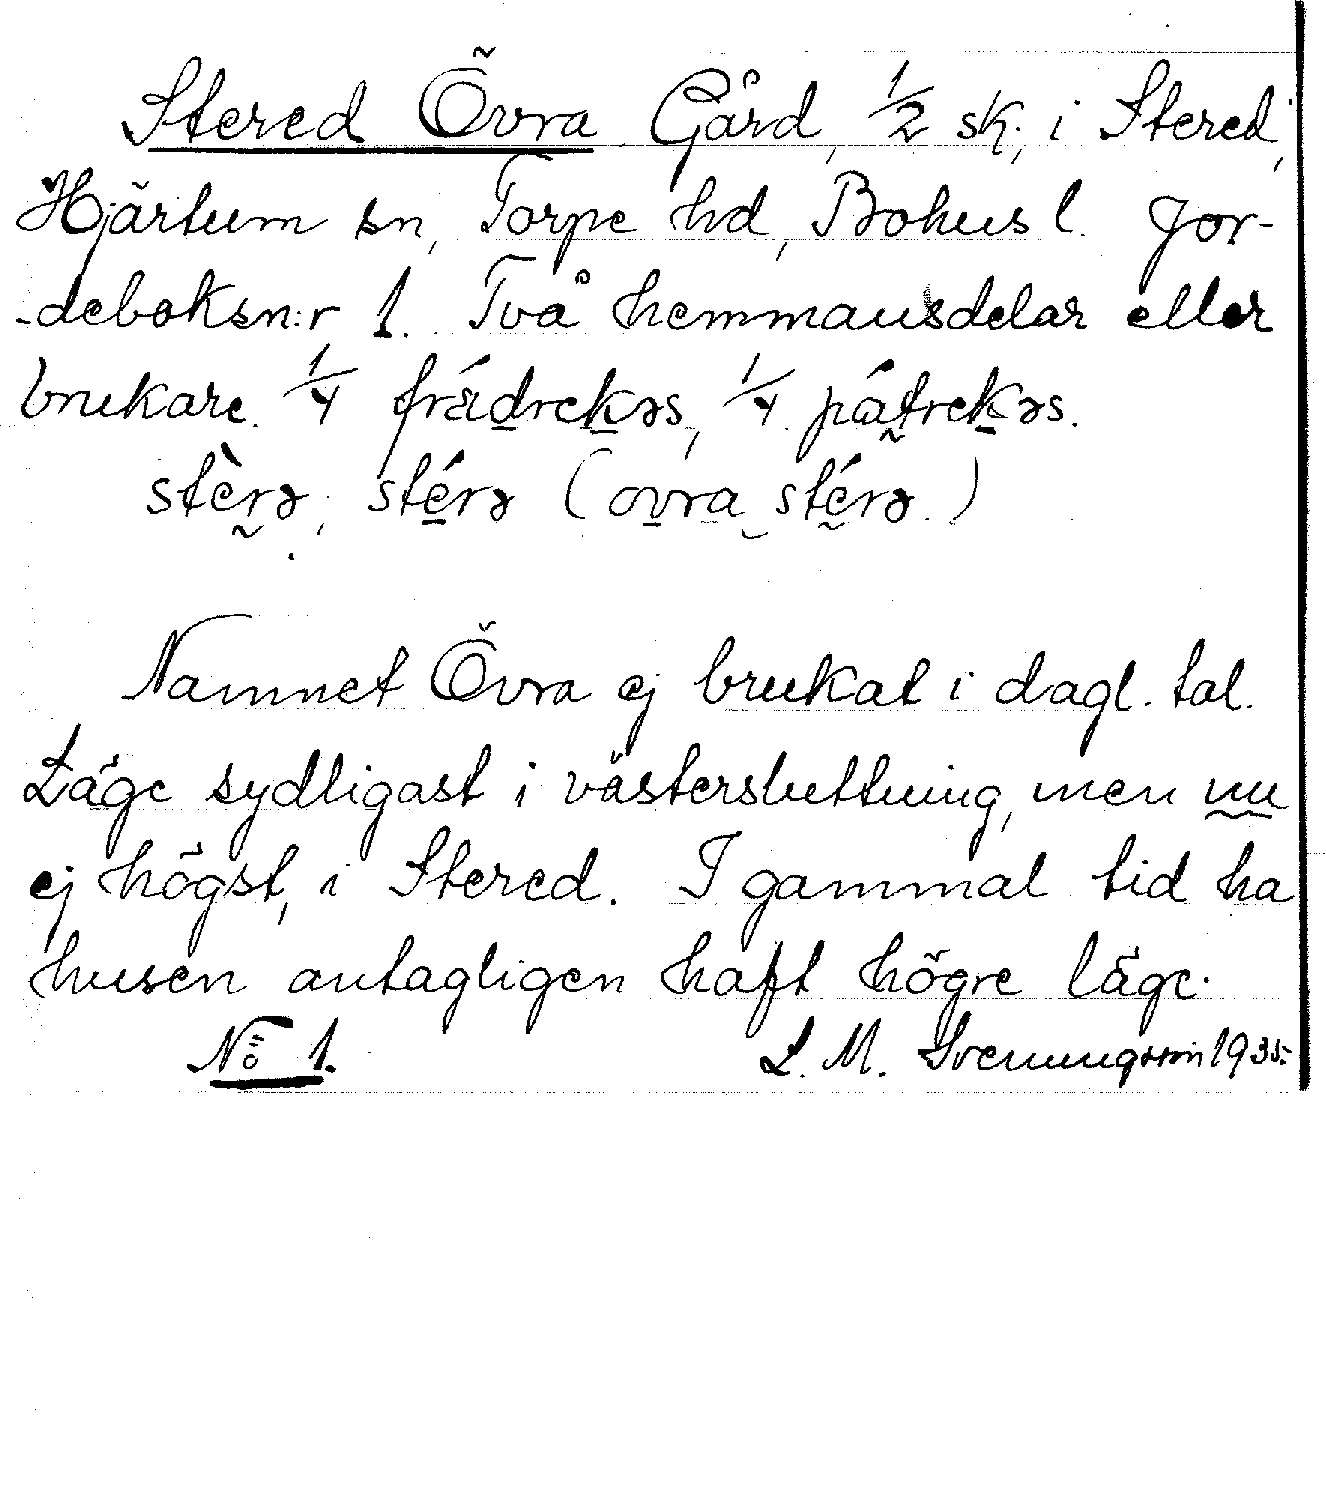 Stered Övra Gård, 1/2 sk., i Stered,
Hjärtum sn, Torpe hd, Bohus l. Jor-
-deboksn:r 1. Två hemmansdelar eller
brukare. 1/4 frædrekəs, 1/4 pátrekəs.
stèrə, stérə (ovra stérə.)
Namnet Övra ej brukat i dagl. tal.
Läge sydligast i västersluttning, men nu
ej högst, i Stered. I gammal tid ha
husen antagligen haft högre läge.
No 1. L. M. Svenungsson 1935.